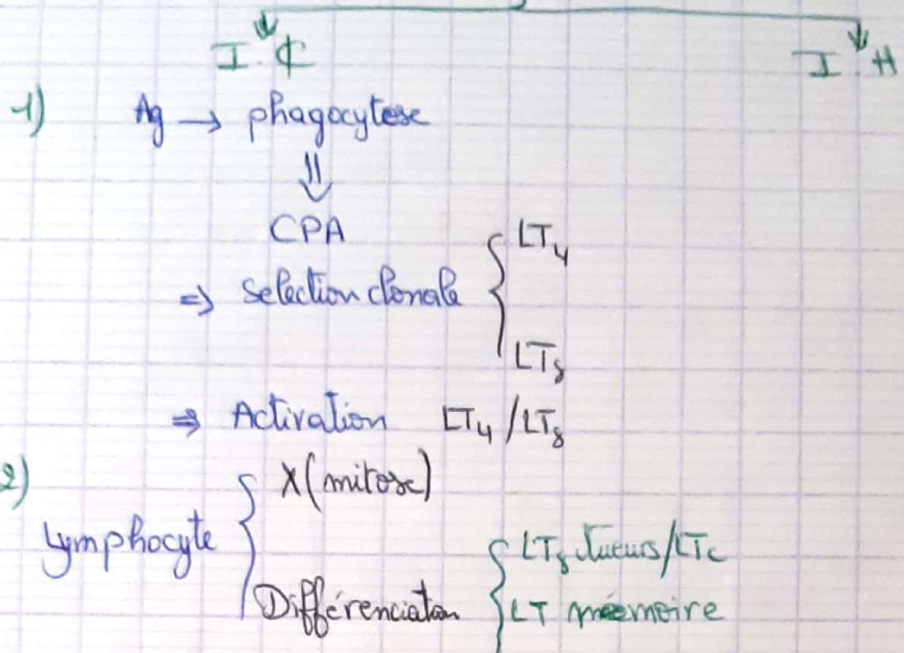 I C I H
1) Ag → phagocytese
⇓
CPA
⇒ Selection clonale { LT4
LT8
⇒ Activation LT4 / LT8
2) Lymphocyte { X (mitose)
Différenciation { LT8 tueurs/LTc
LT mémoire